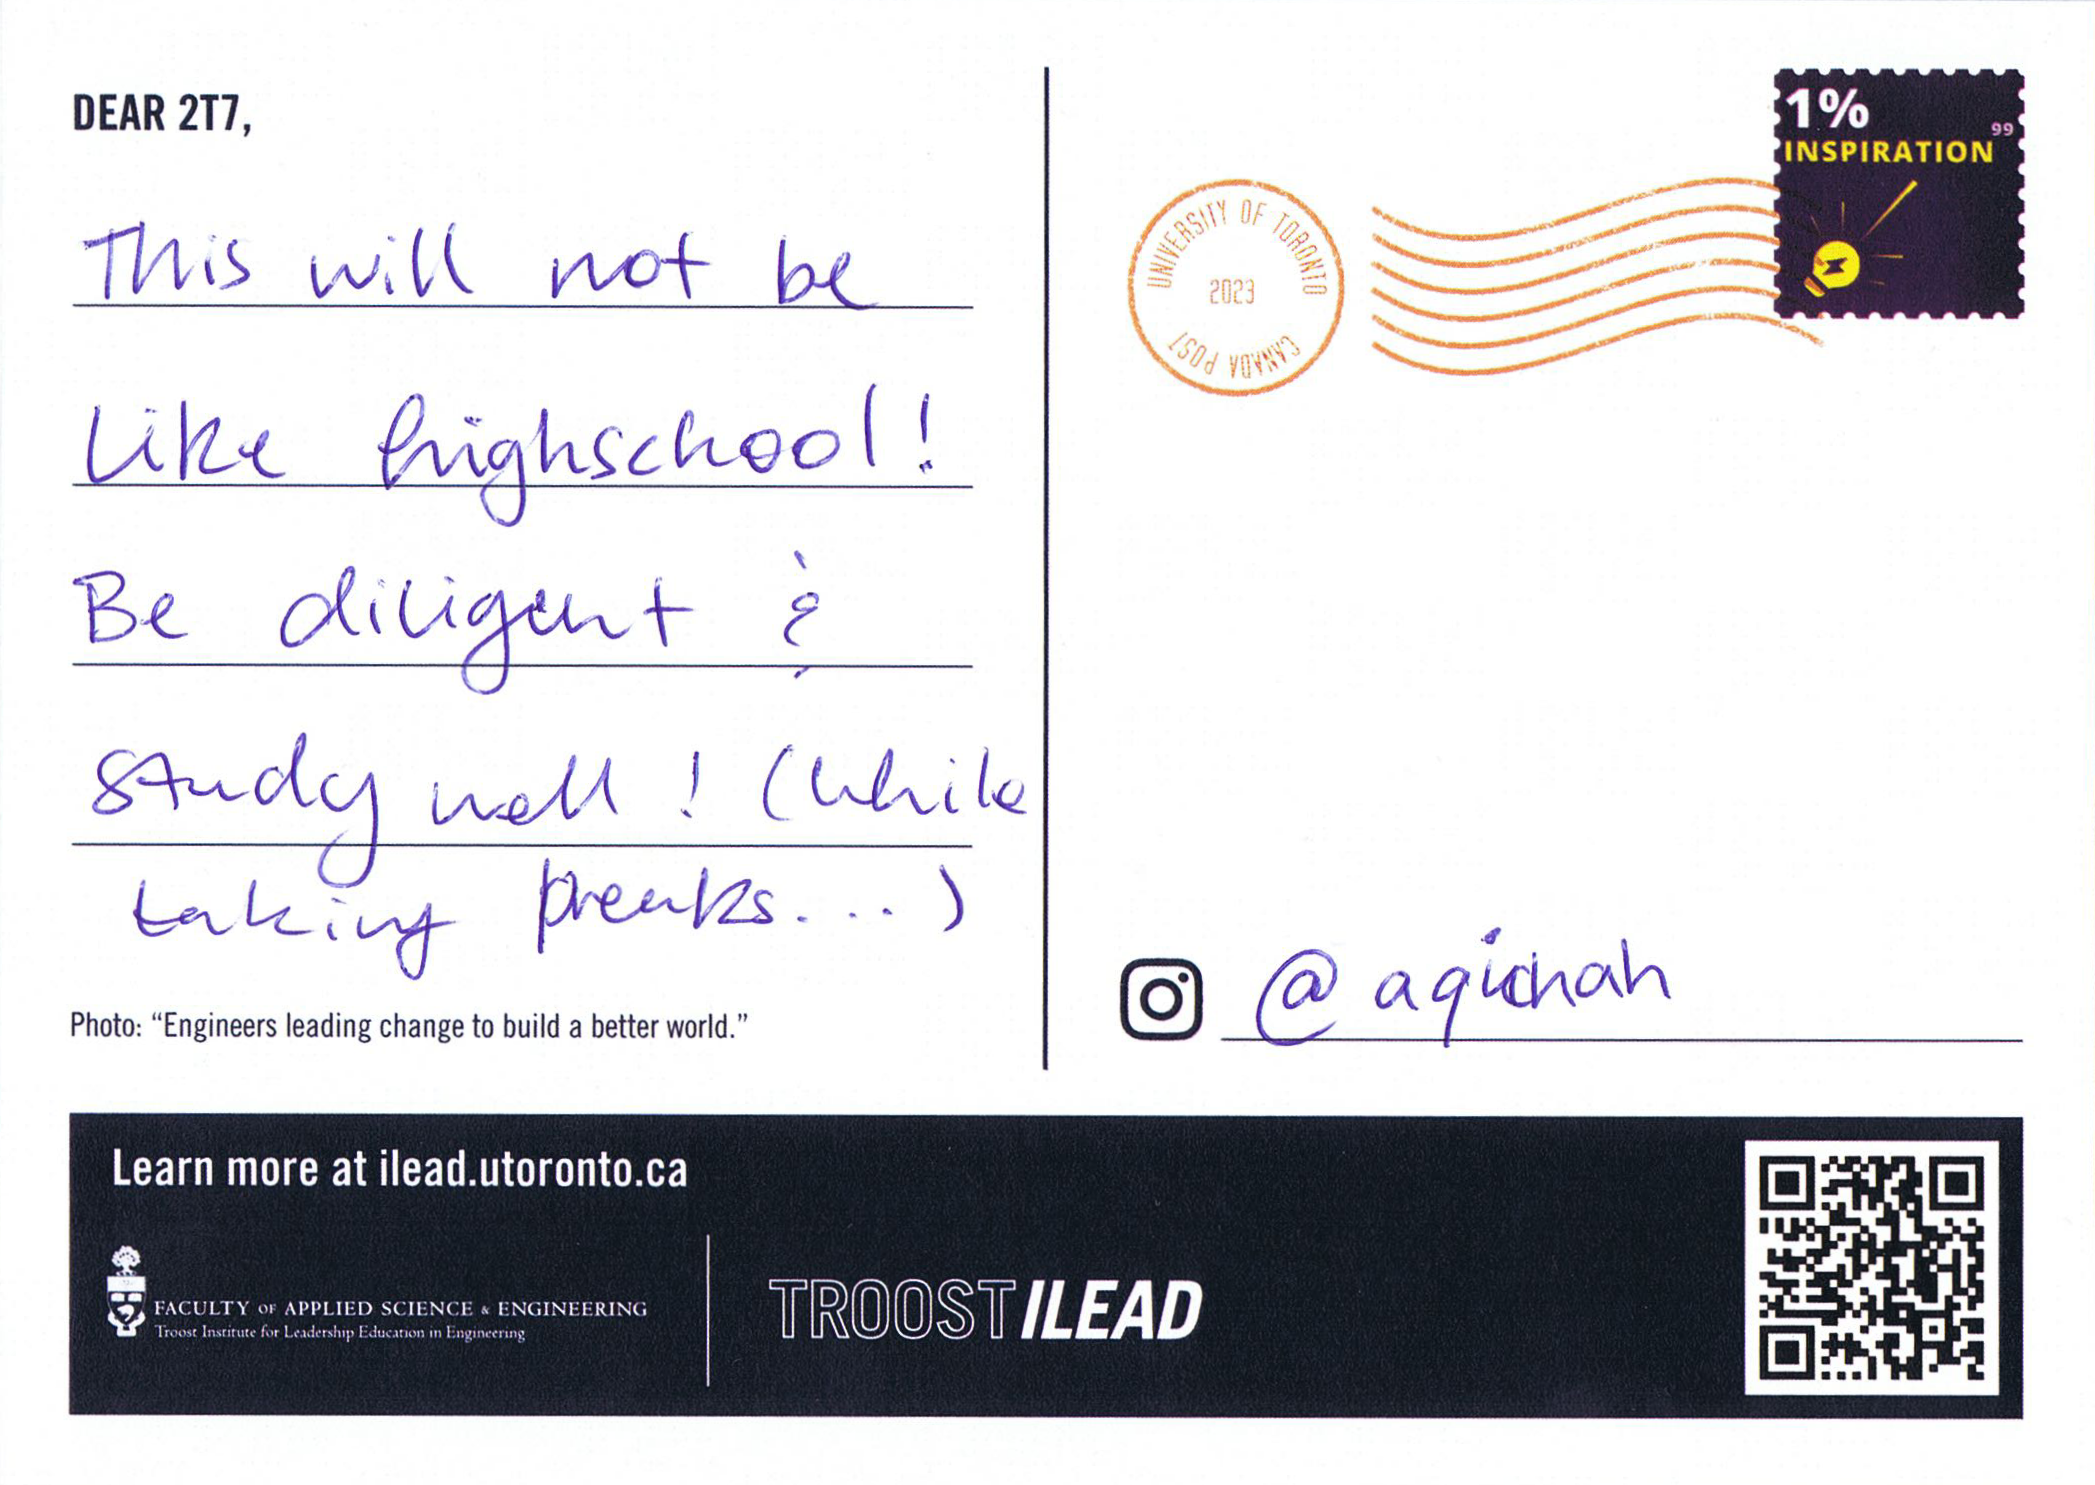 DEAR 2T7,
This will not be
like highschool!
Be diligent &
study well! (while
taking breaks...)
Photo: “Engineers leading change to build a better world.”
1%
99
INSPIRATION
UNIVERSITY OF TORONTO
2023
CANADA POST
Learn more at ilead.utoronto.ca
FACULTY OF APPLIED SCIENCE & ENGINEERING
Troost Institute for Leadership Education in Engineering
TROOST ILEAD